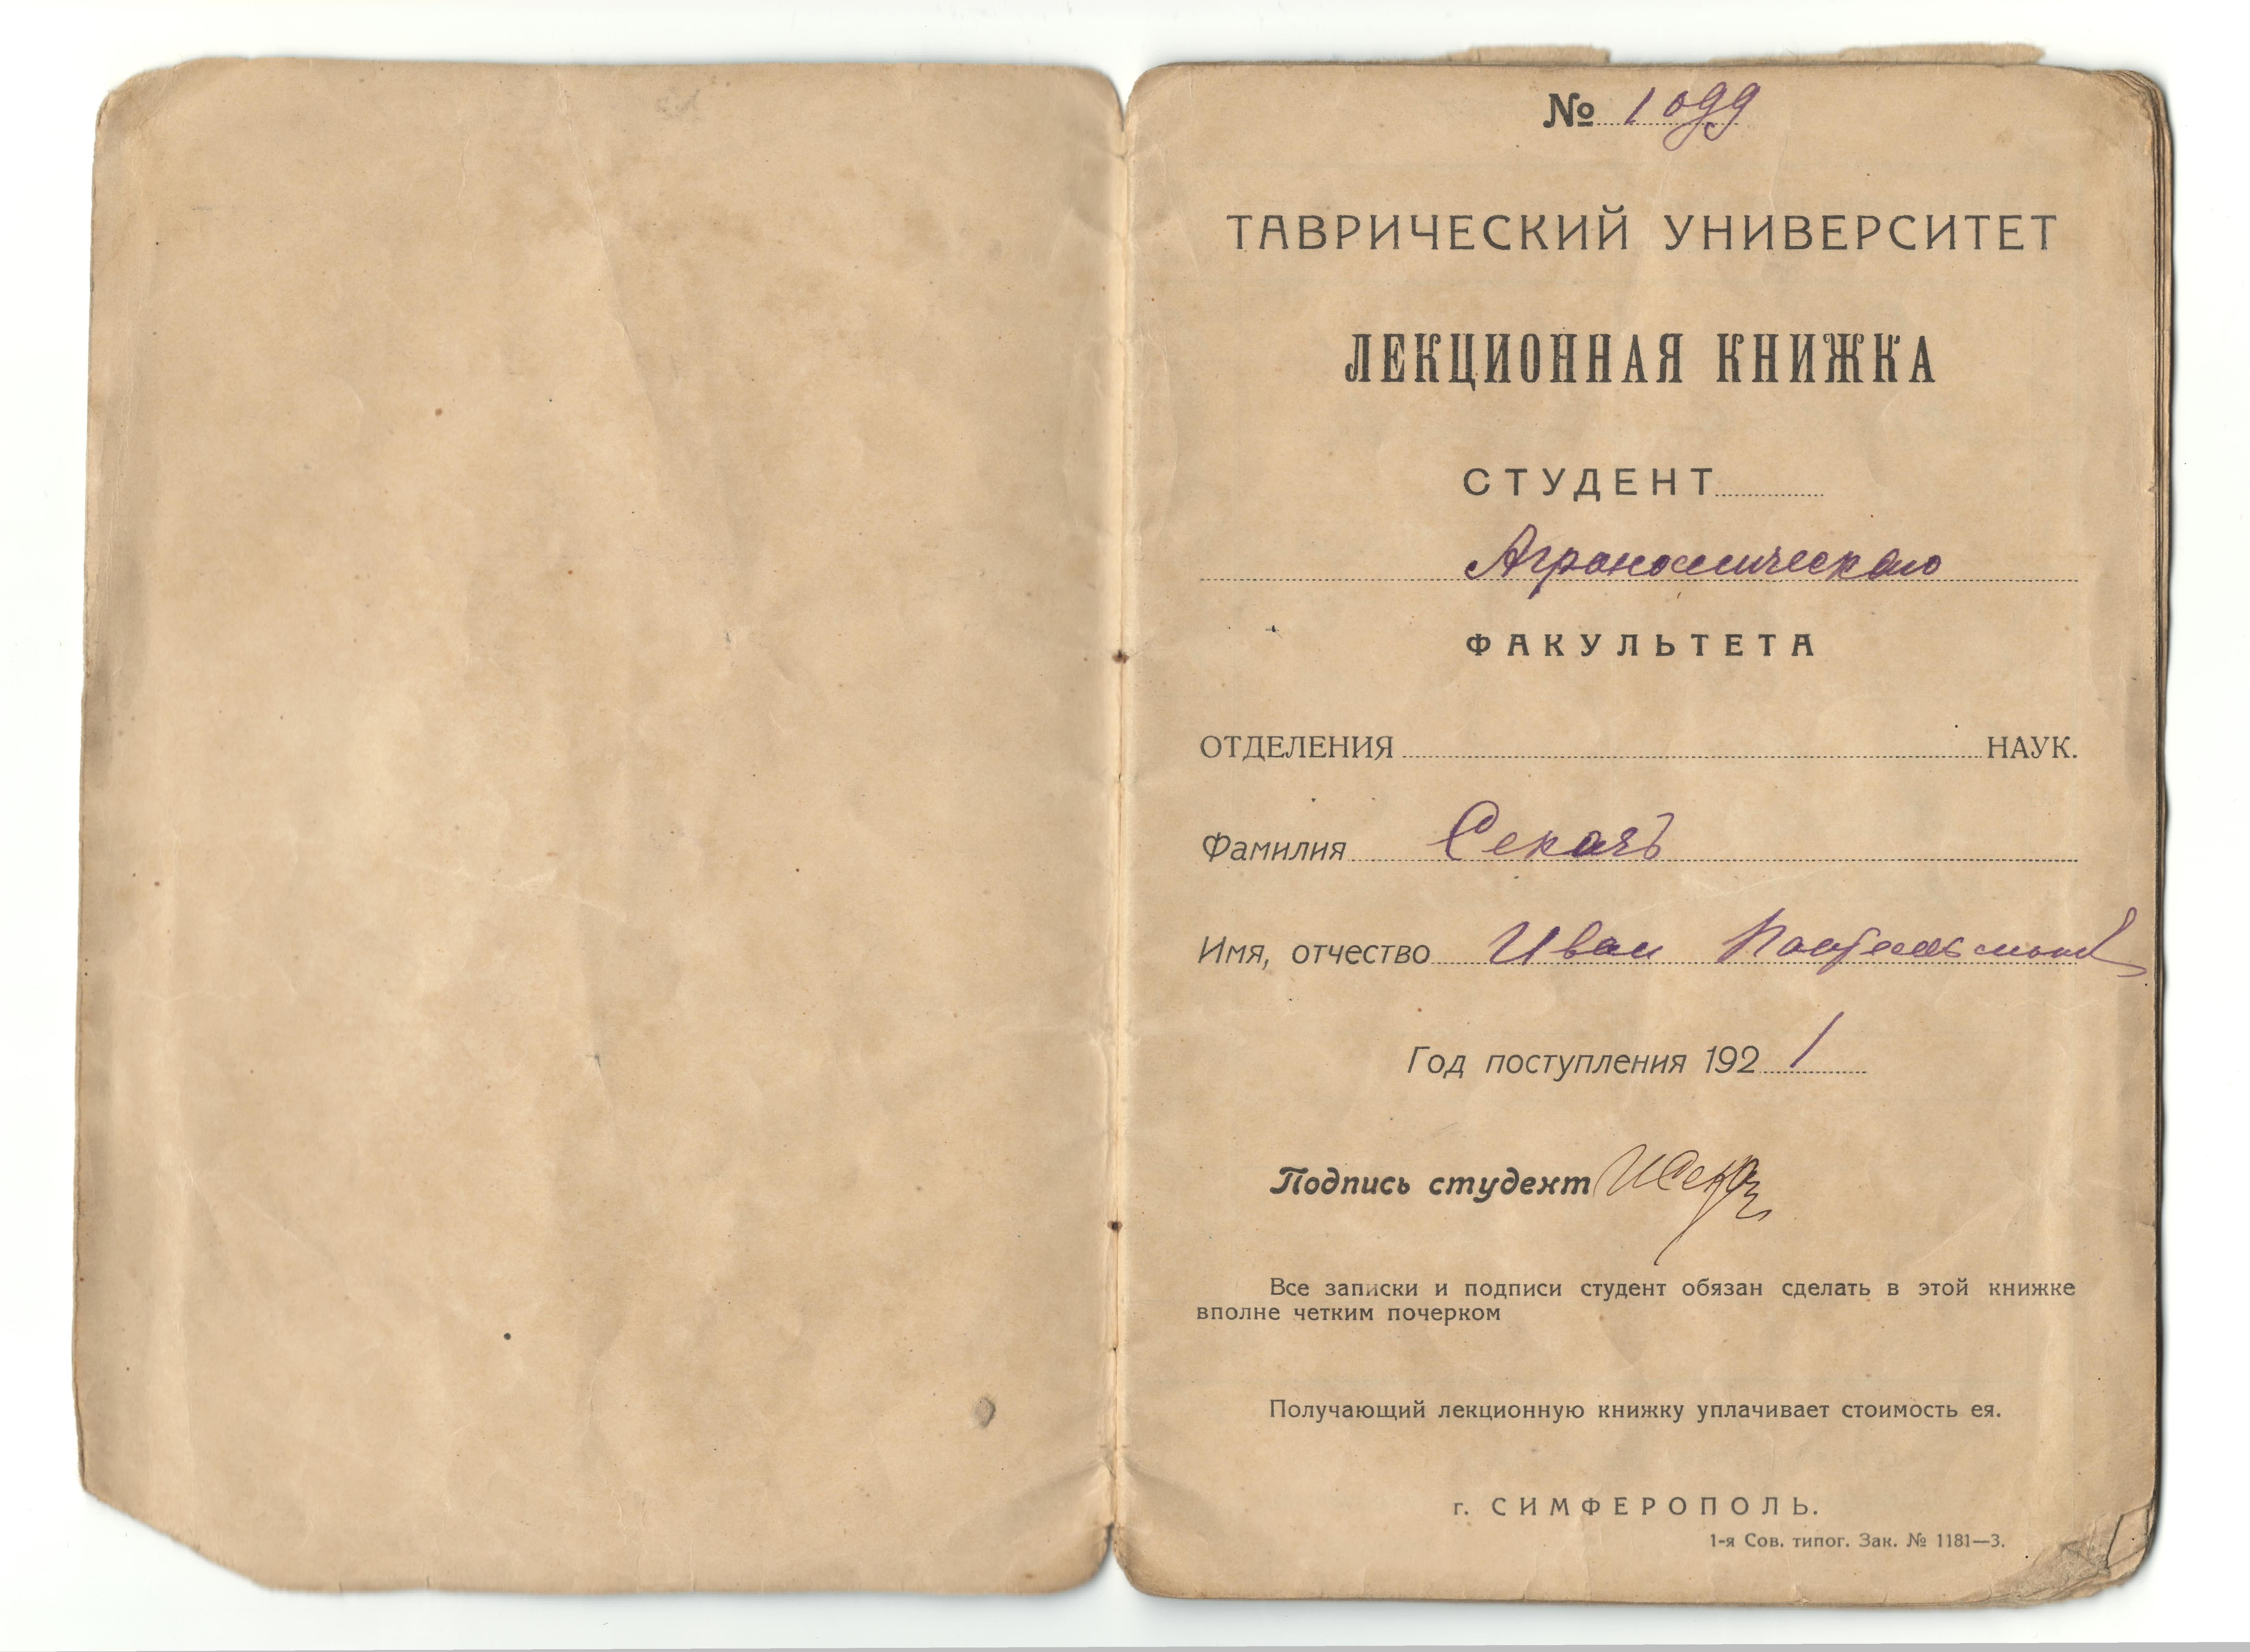 № 1099
ТАВРИЧЕСКИЙ УНИВЕРСИТЕТ
ЛЕКЦИОННАЯ КНИЖКА
СТУДЕНТ
Агрономического
ФАКУЛЬТЕТА
ОТДЕЛЕНИЯ НАУК.
Фамилия Секачъ
Имя, отчество Иван
Год поступления 1921
Подпись студент ИСекач
Все записки и подписи студент обязан сделать в этой книжке
вполне четким почерком
Получающий лекционную книжку уплачивает стоимость ея.
г. СИМФЕРОПОЛЬ.
1-я Сов. типог. Зак. № 1181—3.